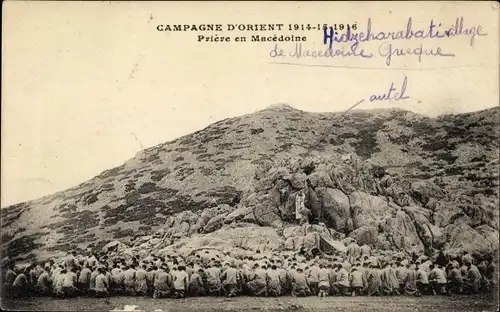 CAMPAGNE D'ORIENT 1914-15-1916
Prière en Macédoine
Hidzeharabati village
de Macedoine Grecque
autel